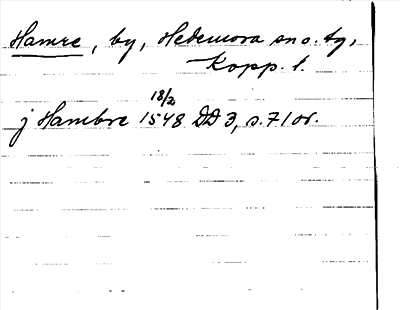 Hamre, by, Hedemora sn o. tg,
Kopp. l.
18/2
j Hambre 1548 DD 3, s. 71 or.